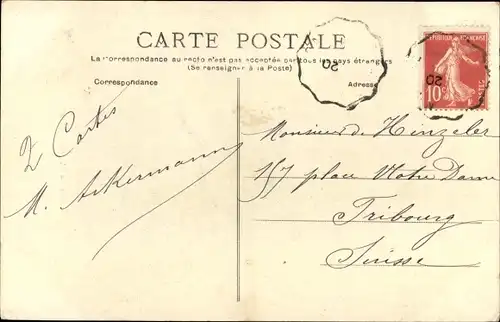 CARTE POSTALE
La correspondance au recto n'est pas acceptée par tous les pays étrangers
(Se renseigner à la Poste)
Correspondance
Adresse
RÉPUBLIQUE FRANÇAISE
10
POSTES
20
20
2 Cartes
M. Ackermann
Monsieur de Hinzeler
157 place Notre Dame
Fribourg
Suisse